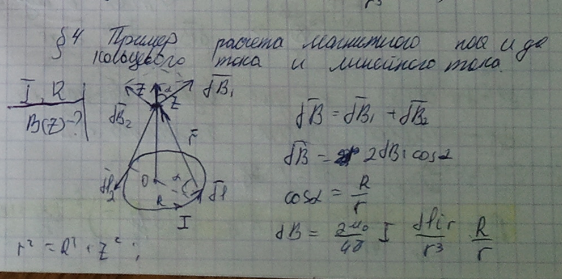 §4 Пример расчета магнитного поля для
кольцевого тока и линейного тока.
I, R
B(Z)-?
Z
α
Z
dB₁
dB₂
r
dl₂
O
α
R
dl
I
r² = R² + Z² ;
dB = dB₁ + dB₂
dB = 2dB₁cosα
cosα = R/r
dB = 2μ₀/4π I dl·r/r³ R/r